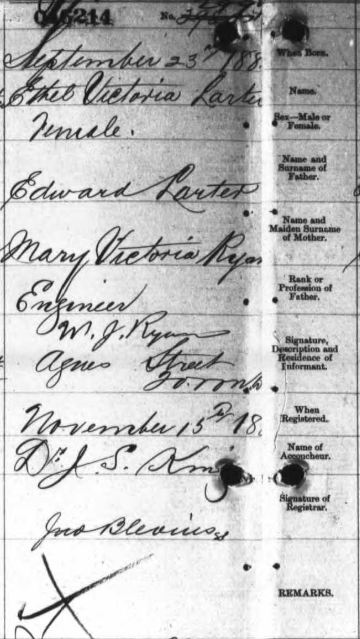 045214 No.
September 23rd 188
When Born.
Ethel Victoria Larter
Name.
Female.
Sex—Male or
Female.
Edward Larter
Name and
Surname of
Father.
Mary Victoria Ryan
Name and
Maiden Surname
of Mother.
Engineer
Rank or
Profession of
Father.
W. J. Ryan
Agnes Street
Toronto
Signature,
Description and
Residence of
Informant.
November 15th 18
When
Registered.
Dr. J. S. King
Name of
Accoucheur.
Jno Blevins
Signature of
Registrar.
REMARKS.